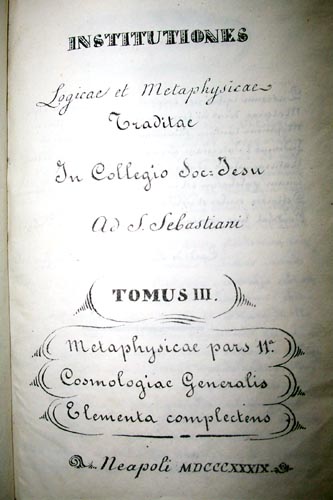 INSTITUTIONES
Logicae et Metaphysicae
Traditae
In Collegio Soc: Jesu
Ad S. Sebastiani
TOMUS III.
Metaphysicae pars 11.a
Cosmologiae Generalis
Elementa complectens
Neapoli MDCCCXXXIX.